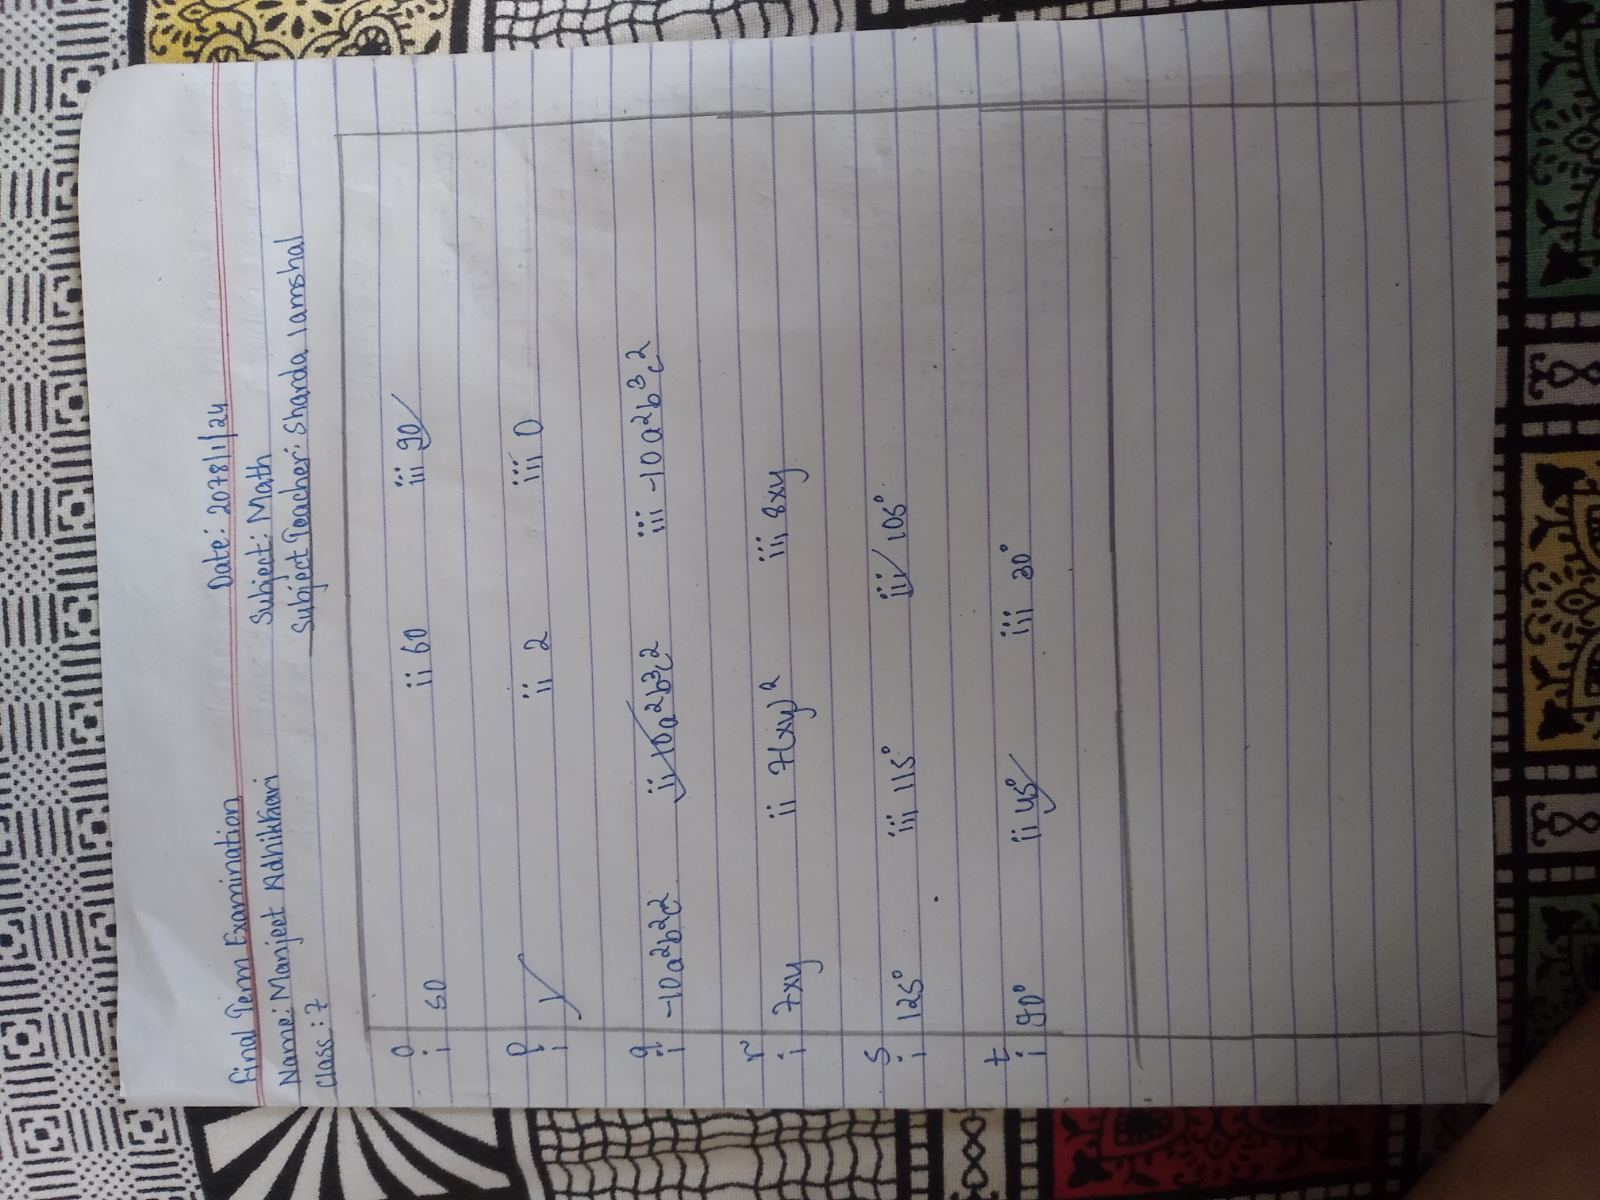 Final Term Examination Date: 2078/1/24
Name: Manjeet Adhikhari Subject: Math
Class: 7 Subject Teacher: Sharda lamshal
o
i 50 ii 60 iii 90
p
i 1 ii 2 iii 0
q
i -10a2b2c2 ii -10a2b3c2 iii -10a2b3c2
r
i 7xy ii 7(xy)2 iii 8xy
s
i 125° iii 115° iii 105°
t
i 90° ii 45° iii 20°